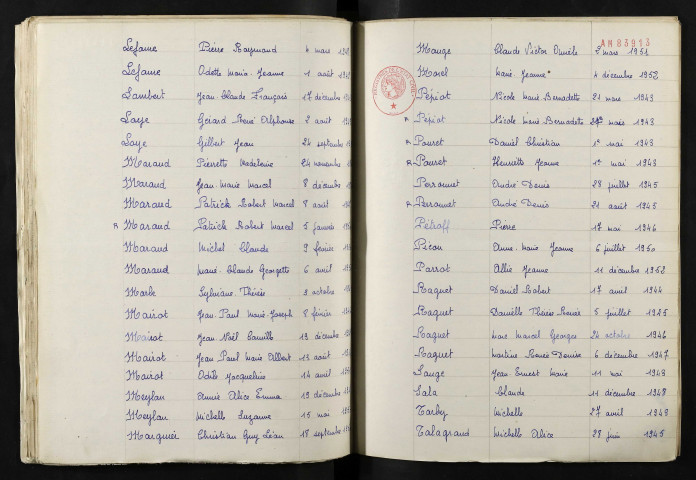 Lefaure Pierre Raymond 4 mars
Lefaure Odette Marie Jeanne 1 août
Lambert Jean Claude François 17 décembre
Laye Gérard René Alphonse 2 août
Laye Gilbert Jean 24 septembre
Maraud Pierrette Madeleine 24 novembre
Maraud Jean Marie Marcel 8 décembre
Maraud Patrick Robert Marcel 8 août
R Maraud Patrick Robert Marcel 5 janvier
Maraud Michel Claude 9 février
Maraud Marie Claude Georgette 6 avril
Marle Sylviane Thérèse 3 octobre
Mairot Jean Paul Marie Joseph 8 février
Mairot Jean Noël Camille 19 décembre
Mairot Jean Paul Marie Albert 13 août
Mairot Odile Jacqueline 14 avril
Meylan Annie Alice Emma 19 décembre
Meylan Michelle Suzanne 15 mai
Marquier Christian Guy Léon 18 septembre
AM 83913
Mauge Claude Victor 2 mars 1951
Morel Marie Jeanne 4 décembre 1952
Pépiot Nicole Marie Bernadette 21 mars 1943
R Pépiot Nicole Marie Bernadette mars 1943
R Pourret Daniel Christian 1er mai 1943
R Pourret Henriette Jeanne 1er mai 1943
Perronnet André Denis 28 juillet 1945
R Perronnet André Denis 21 août 1945
Pétroff Pierre 17 mai 1946
Picon Anne Marie Jeanne 6 juillet 1950
Parrot Allie Jeanne 11 décembre 1952
Raguet Daniel Robert 17 avril 1944
Raguet Danielle Thérèse 5 juillet 1925
Raguet Marc Marcel Georges 24 octobre 1946
Raguet Martine Renée Denise 6 décembre 1947
Sauge Jean Ernest Marie 11 mai 1943
Sala Claude 11 décembre 1948
Tarby Michelle 27 avril 1943
Talagrand Michelle Alice 28 juin 1945